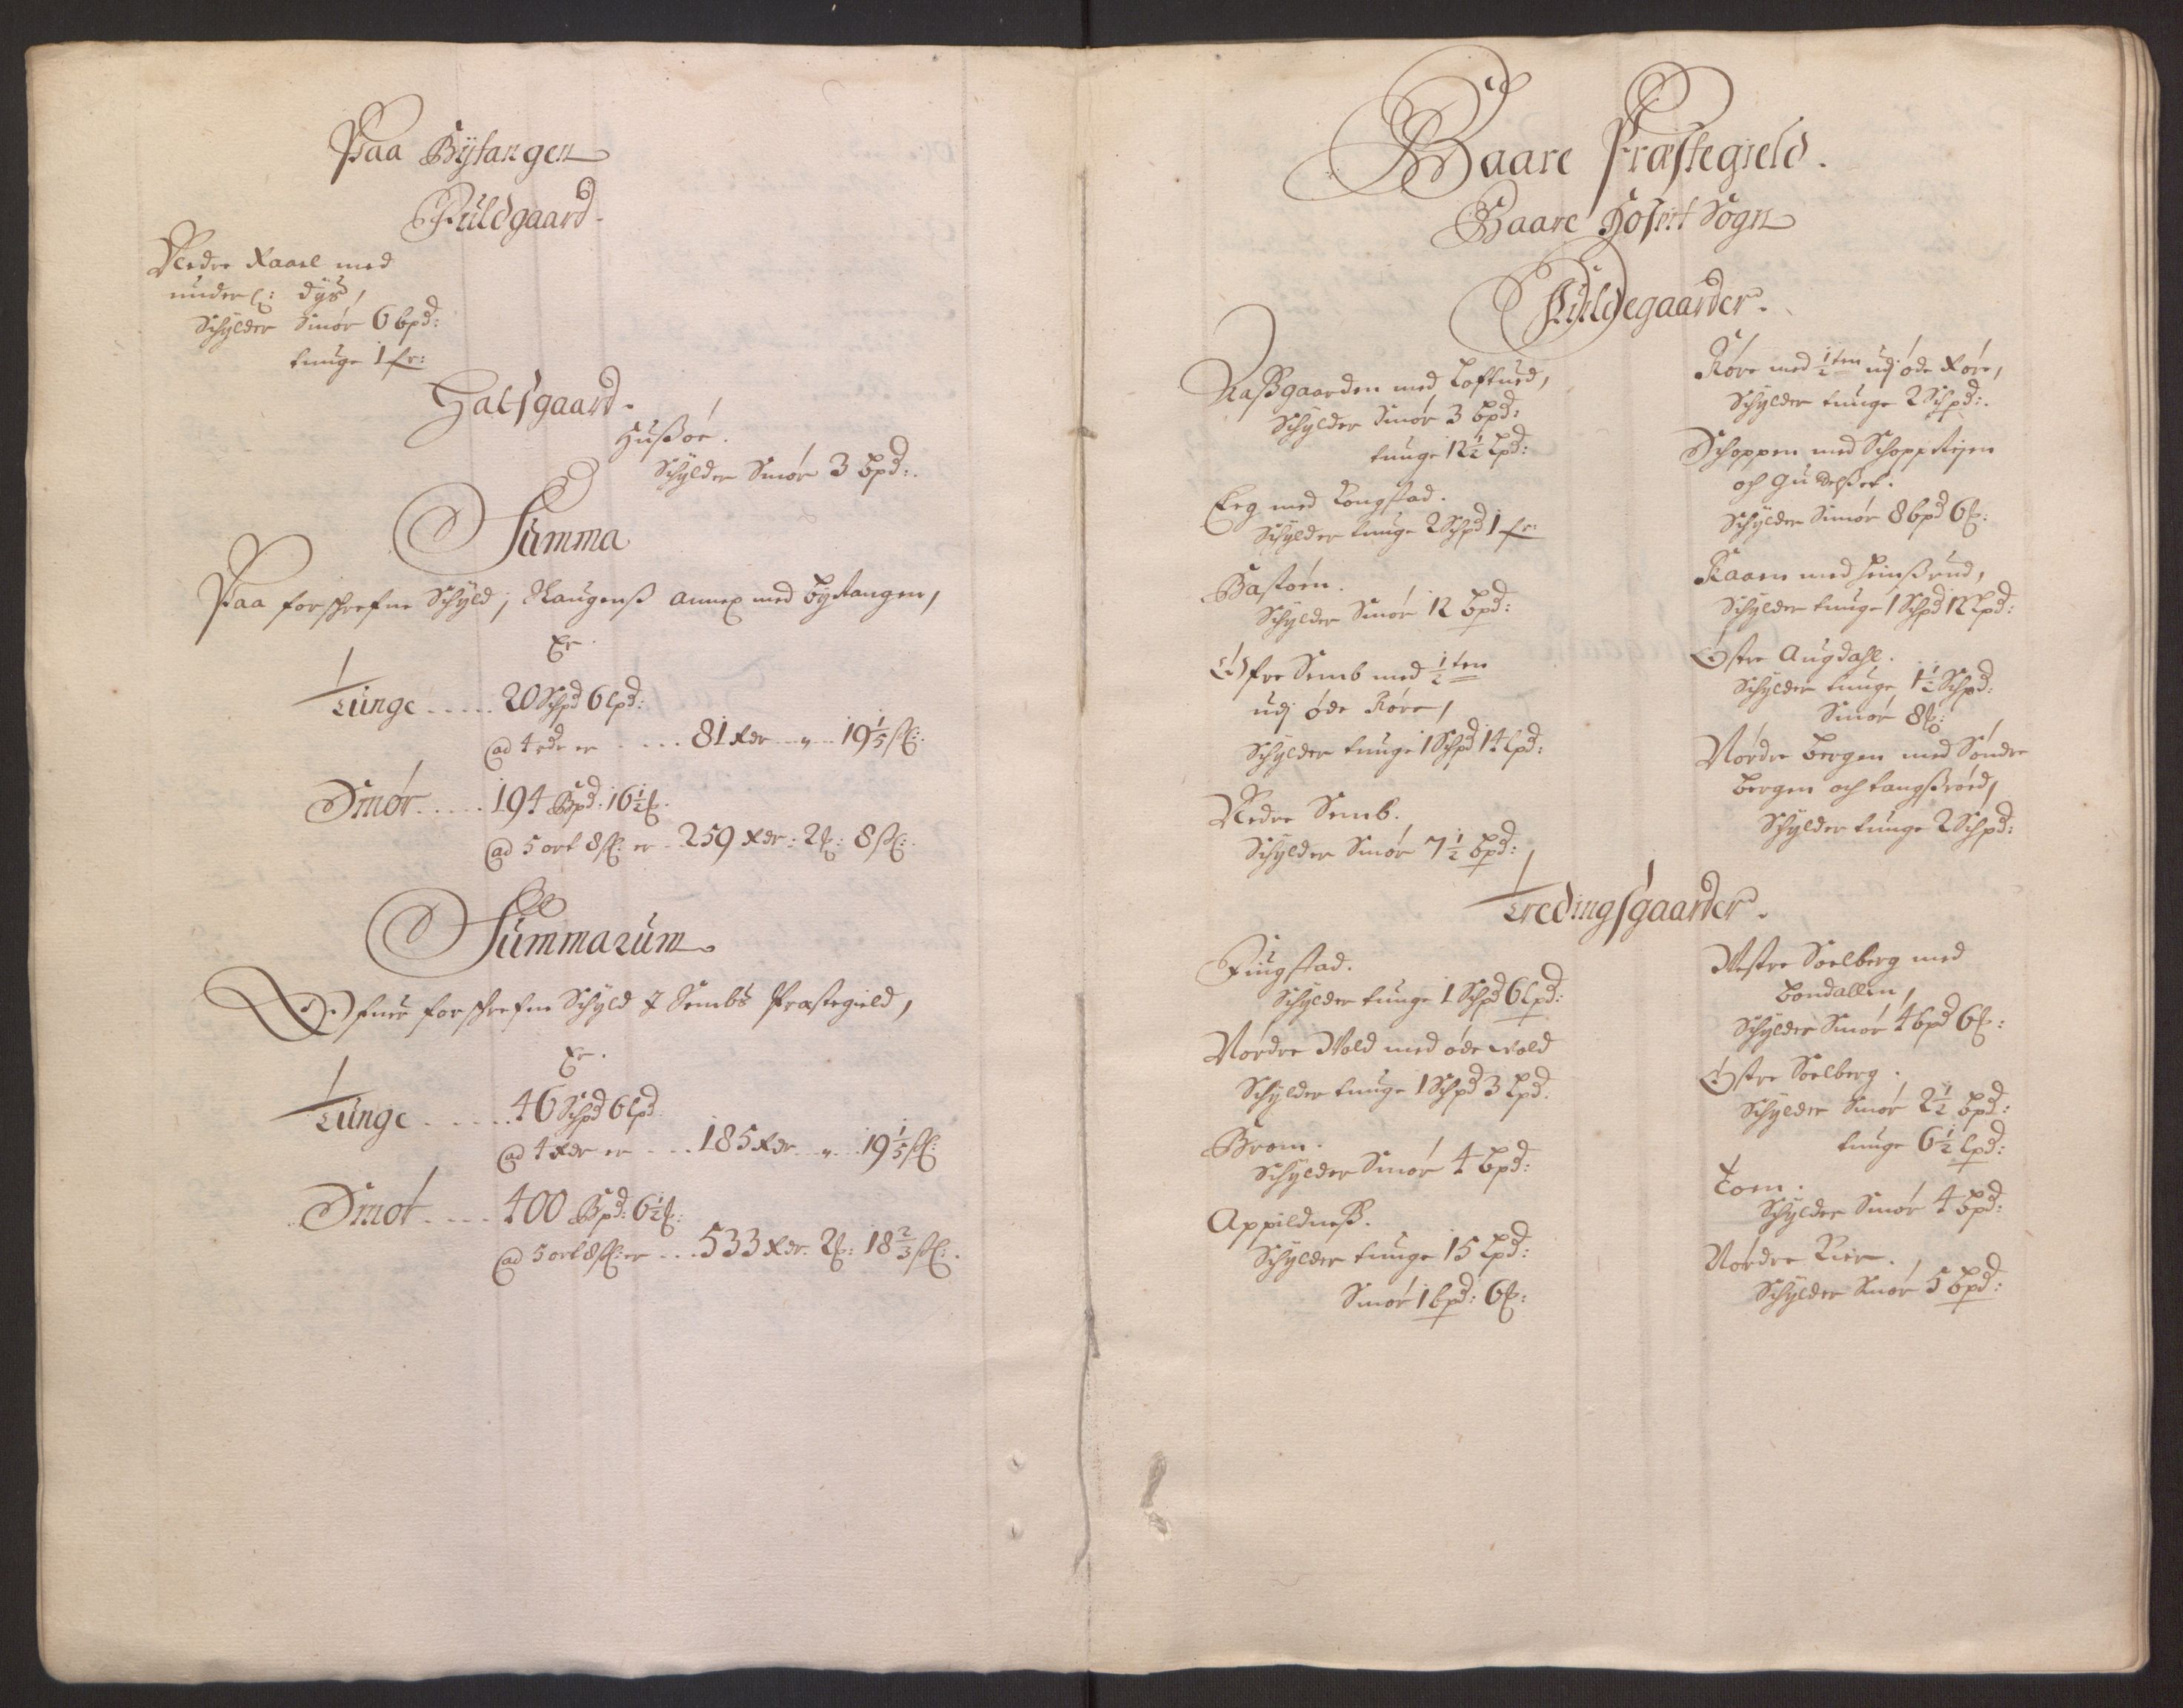 Paa Bytangen
Fuldgaard.
Nedre Raael med
under
Schylder Smør 6 bpd:
tunge 1 fr:
Halfgaard.
Hußøe.
Schylder Smør 3 Bpd:.
Summa
Paa forschrefne Schyld, j Slaugenß annex med bytangen,
Er.
Tunge ..... 20 Schpd 6 lpd:
ad 4 rdr er .... 81 Rdr " 19 1/5 sk:
Smør ..... 194 Bpd: 16 1/2 sk.
ad 5 ort 8 sk: er .. 259 Rdr: 2 sk: 8 sk:.
Summarum
Ofuer forschrefne Schyld j Sembs Præstegield,
Er.
Tunge ...... 46 Schpd 6 lpd.
ad 4 Rdr er .... 185 Rdr " 19 1/5 sk:
Smør .... 400 Bpd: 6 1/2
ad 5 ort 8 sk: er ... 533 Rdr. 2 : 18 2/3 sk:.
Baare Præstegield.
Baare Hofuit Sogn
Fuldegaarder.
Naßgaarden med Loftued,
Schylder Smør 3 bpd:
tunge 12 1/2 Lpd:
Eeg med Rongstad.
Schylder tunge 2 Schpd 1 fr:
Bastøen.
Schylder Smør 12 bpd:
Øfre Semb med 1/2 ten
udj øde Røre,
Schylder tunge 1 Schpd 14 lpd:
Nedre Semb.
Schylder Smør 7 1/2 bpd:
Røre med 1/2 ten udj øde Røre,
Schylder tunge 2 Schpd:.
Schoppen med Schoppstejen
och
Schylder Smør 8 bpd 6
Kaaen med heinßrud,
Schylder tunge 1 Schpd 12 Lpd:
Østre Augdahl.
Schylder tunge 1 1/2 Schpd:
Smør 8
Nordre bergen med Søndre
bergen och Langßrød,
Schylder tunge 2 Schpd:
Tredingsgaarder.
Fiugstad.
Schylder tunge 1 Schpd 6 Lpd:
Nordre Wold med øde wold
Schylder tunge 1 Schpd 3 Lpd.
Brom.
Schylder Smør 4 bpd:
Appildneß.
Schylder tunge 15 Lpd:
Smør 1 bpd: 6
Westre Soelberg med
bondallen,
Schylder Smør 4 bpd 6
Østre Soelberg.
Schylder Smør 2 1/2 bpd:
tunge 6 1/2 Lpd:
Toen.
Schylder Smør 4 bpd:
Nordre Kier.
Schylder Smør 5 bpd: